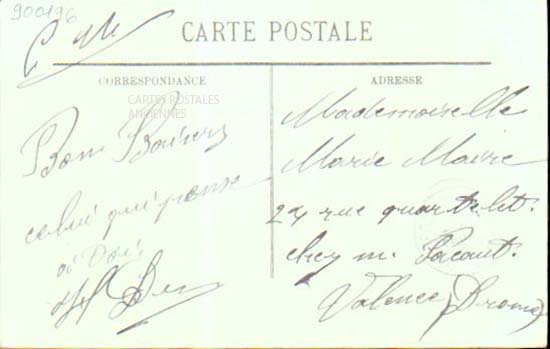 900196
CARTE POSTALE
CORRESPONDANCE
CARTES POSTALES
ANCIENNES
Bons Baisers
celui qui pense
à
ADRESSE
Mademoiselle
Marie Maire
24 rue quartelet.
chez m. Pacaut.
Valence (Drome)